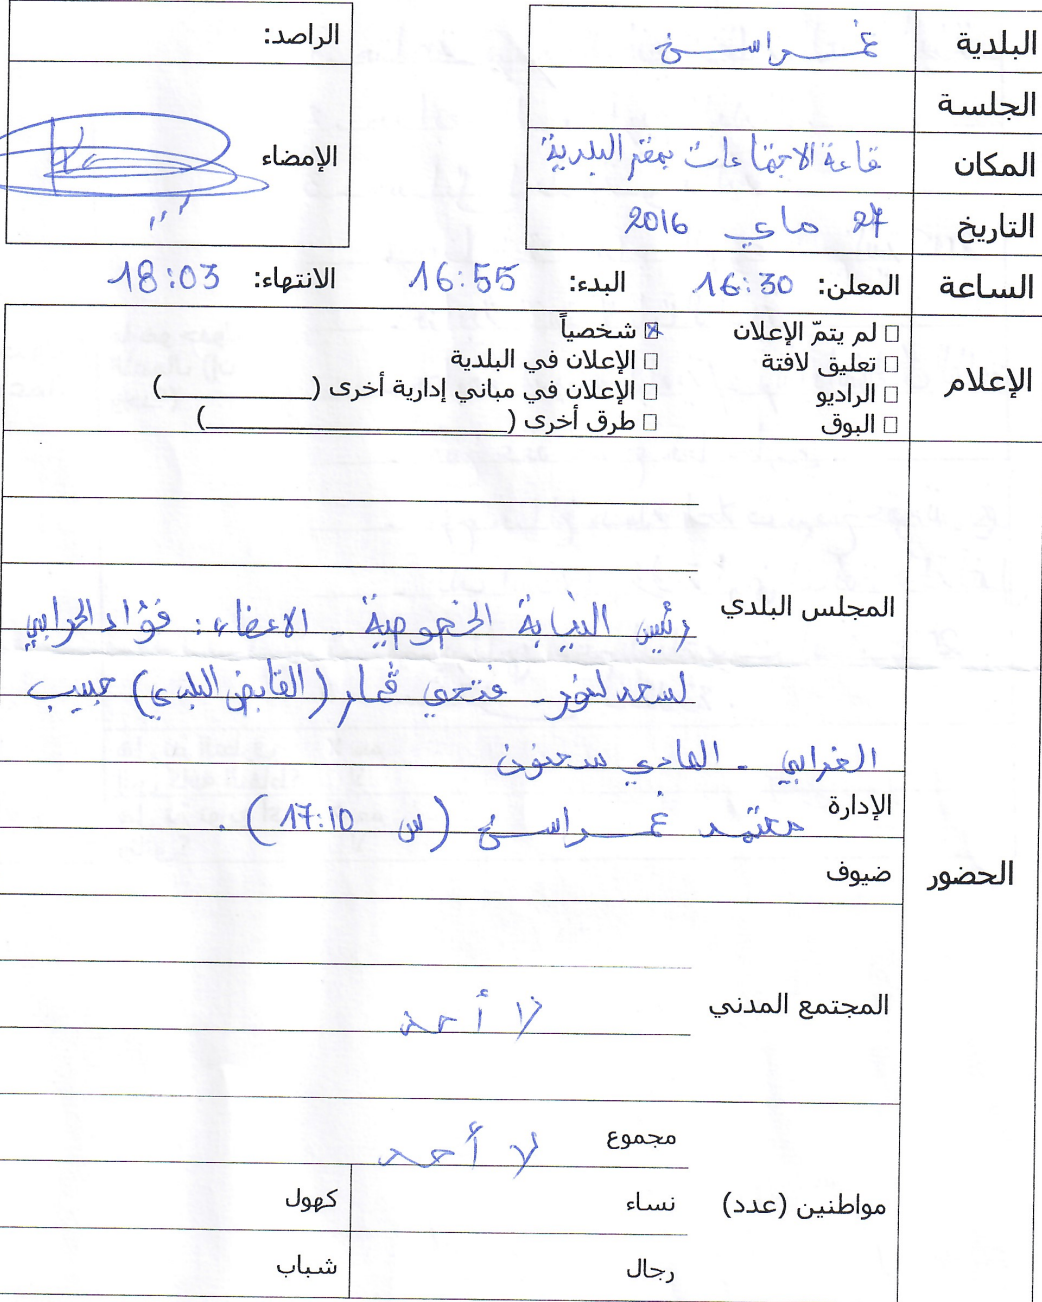 البلدية غمراسن
الراصد:
الجلسة
المكان قاعة الاجتماعات بمقر البلدية
الإمضاء
التاريخ 27 ماي 2016
الساعة المعلن: 16:30 البدء: 16:55 الانتهاء: 18:03
الإعلام
☐ لم يتمّ الإعلان ☒ شخصياً
☐ تعليق لافتة ☐ الإعلان في البلدية
☐ الراديو ☐ الإعلان في مباني إدارية أخرى (____________)
☐ البوق ☐ طرق أخرى (________________________)
الحضور
المجلس البلدي
رئيس النيابة الخصوصية - الاعضاء: فؤاد الحرابي
لسعد لنور - فتحي ڤمار (القابض البلدي) حبيب
الغرابي - الهادي سحنون
الإدارة
معتمد غمراسن (س 17:10).
ضيوف
المجتمع المدني لا أحد
مواطنين (عدد)
مجموع لا أحد
نساء كهول
رجال شباب